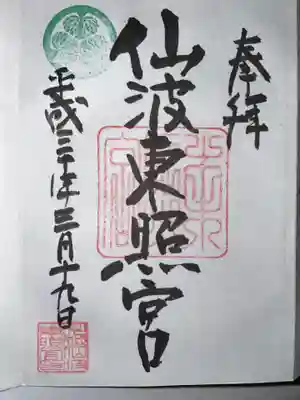 奉拝
仙波東照宮
平成三十年三月十九日